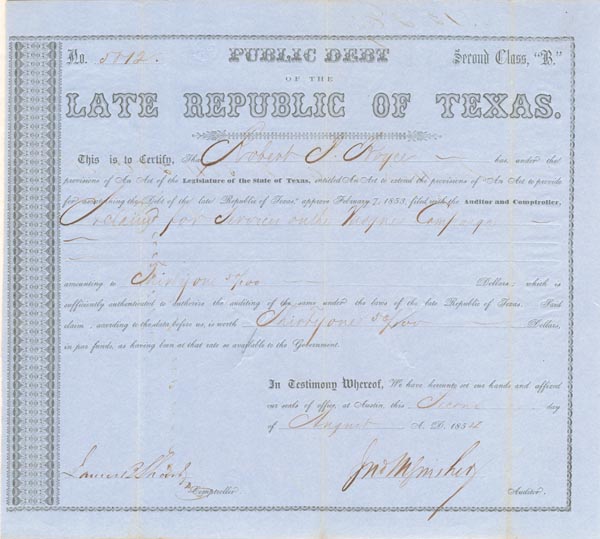 No. 5712. PUBLIC DEBT Second Class, "B."
OF THE
LATE REPUBLIC OF TEXAS.
This is to Certify, That Robert P. has under the
provisions of An Act of the Legislature of the State of Texas, entitled An Act to extend the provisions of "An Act to provide
for ascertaining the Debt of the late Republic of Texas," approve February 7, 1853, filed with the Auditor and Comptroller,
a claim for Services on the Campaign
amounting to Thirty one 50/100 Dollars; which is
sufficiently authenticated to authorize the auditing of the same under the laws of the late Republic of Texas. Said
claim, according to the data before us, is worth Thirty one 50/100 Dollars,
in par funds, as having been at that rate so available to the Government.
In Testimony Whereof, We have hereunto set our hands and affixed
our seals of office, at Austin, this Second day
of August A. D. 1854
James B. Shaw
Comptroller. Auditor.